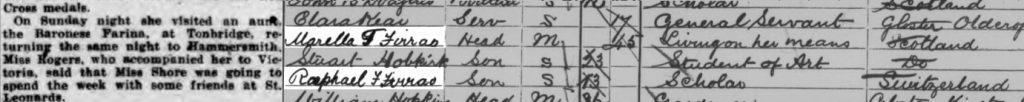 Cross medals.
On Sunday night she visited an aunt,
the Baronese Farina, at Tonbridge, re-
turning the same night to Hammersmith.
Miss Rogers, who accompanied her to Vic-
toria, said that Miss Shore was going to
spend the week with some friends at St.
Leonards.
Scholar Scotland
Clara Kear Serv S 17 General Servant Gloster
Head M 45 Living on her means Scotland
Stuart Hobkirk Son S 23 Student of Art Do
Raphael F Firrao Son S 13 Scholar Switzerland
Head M